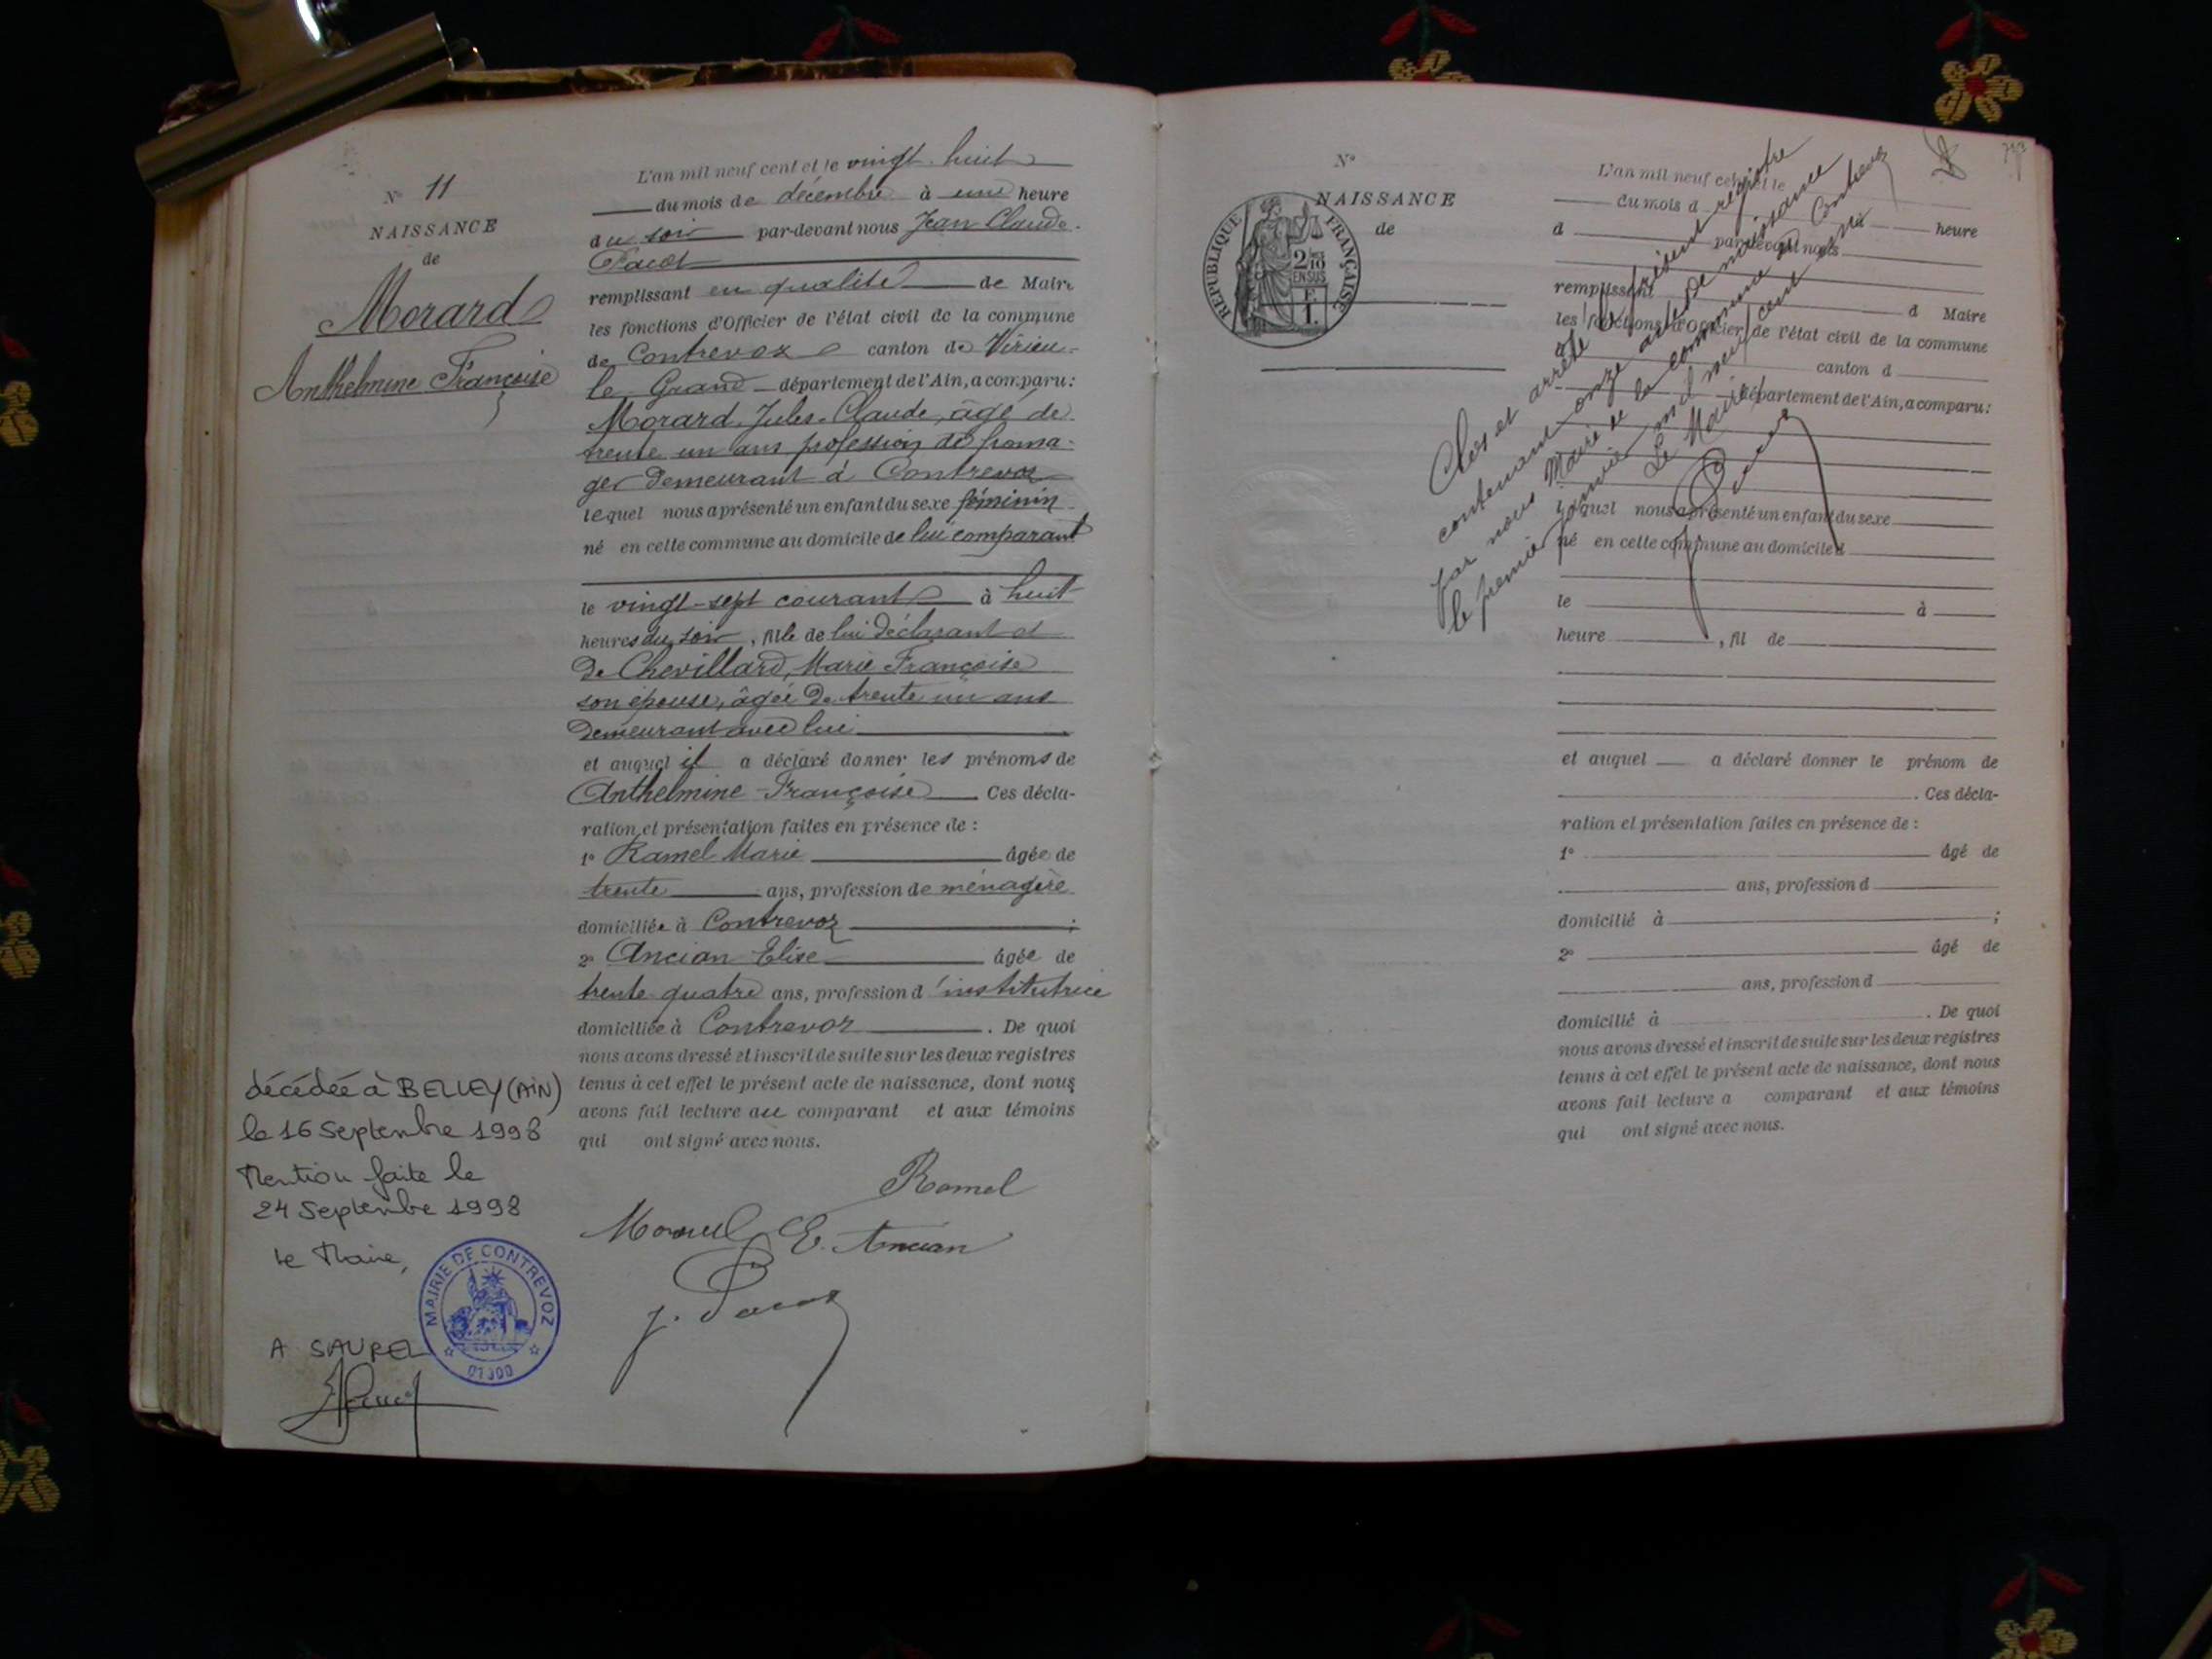 N° 11
NAISSANCE
de
Morard
Anthelmine Françoise
L'an mil neuf cent et le vingt huit
du mois de décembre à une heure
du soir par-devant nous Jean Claude
Pacot
remplissant en qualité de Maire
les fonctions d'Officier de l'état civil de la commune
de Contrevoz canton de Virieu-
le Grand département de l'Ain, a comparu:
Morard Jules-Claude, âgé de
trente un ans profession de froma-
ger demeurant à Contrevoz
lequel nous a présenté un enfant du sexe féminin
né en cette commune au domicile de lui comparant
le vingt-sept courant à huit
heures du soir, fille de lui déclarant et
de Chevillard, Marie Françoise
son épouse, âgée de trente un ans
demeurant avec lui
et auquel il a déclaré donner les prénoms de
Anthelmine Françoise Ces décla-
ration et présentation faites en présence de :
1° Ramel Marie âgée de
trente ans, profession de ménagère
domiciliée à Contrevoz ;
2° Ancian Elise âgée de
trente quatre ans, profession d'institutrice
domiciliée à Contrevoz . De quoi
nous avons dressé et inscrit de suite sur les deux registres
tenus à cet effet le présent acte de naissance, dont nous
avons fait lecture au comparant et aux témoins
qui ont signé avec nous.
Ramel
Morard E. Ancian
J. Pacot
décédée à BELLEY (AIN)
le 16 Septembre 1998
Mention faite le
24 Septembre 1998
Le Maire,
MAIRIE DE CONTREVOZ
01300
A SAUREL
N°
NAISSANCE
de
REPUBLIQUE FRANÇAISE
2/10
EN SUS
L'an mil neuf cent et le
du mois d à heure
d par-devant nous
remplissant d Maire
les fonctions d'Officier de l'état civil de la commune
d canton d
département de l'Ain, a comparu:
lequel nous a présenté un enfant du sexe
né en cette commune au domicile d
le à
heure , fil de
et auquel a déclaré donner le prénom de
. Ces décla-
ration et présentation faites en présence de :
1° âgé de
ans, profession d
domicilié à ;
2° âgé de
ans, profession d
domicilié à . De quoi
nous avons dressé et inscrit de suite sur les deux registres
tenus à cet effet le présent acte de naissance, dont nous
avons fait lecture a comparant et aux témoins
qui ont signé avec nous.
Clos et arrêté le présent registre
contenant onze actes de naissance
par nous Maire de la commune de Contrevoz
le premier janvier mil neuf cent un
Le Maire
Pacot